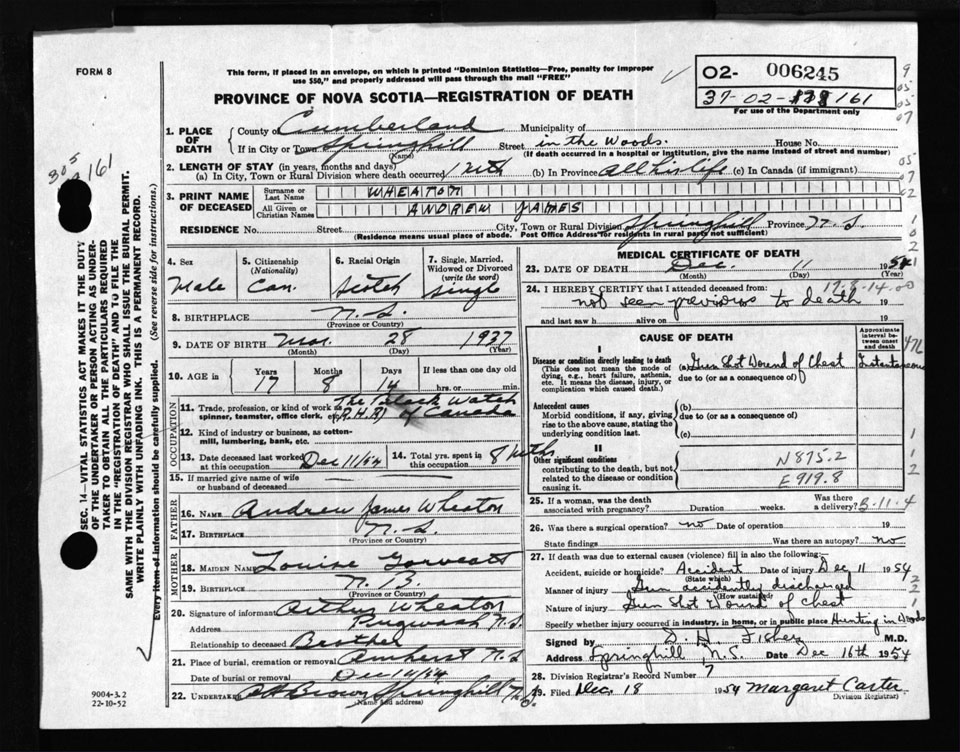 FORM 8
This form, if placed in an envelope, on which is printed "Dominion Statistics—Free, penalty for improper
use $50," and properly addressed will pass through the mail "FREE"
PROVINCE OF NOVA SCOTIA—REGISTRATION OF DEATH
02- 006245
37-02- 161
For use of the Department only
1. PLACE OF DEATH
County of Cumberland Municipality of
If in City or Town Springhill Street in the Woods. House No.
(Name) (If death occurred in a hospital or institution, give the name instead of street and number)
2. LENGTH OF STAY (in years, months and days)
(a) In City, Town or Rural Division where death occurred 1 mth (b) In Province All his life (c) In Canada (if immigrant)
3. PRINT NAME OF DECEASED
Surname or Last Name WHEATON
All Given or Christian Names ANDREW JAMES
RESIDENCE No. Street City, Town or Rural Division Springhill Province N.S.
(Residence means usual place of abode. Post Office Address for residents in rural parts not sufficient)
4. Sex Male
5. Citizenship (Nationality) Can.
6. Racial Origin Scotch
7. Single, Married, Widowed or Divorced (write the word) Single
8. BIRTHPLACE N.S.
(Province or Country)
9. DATE OF BIRTH Mar. 28 1937
(Month) (Day) (Year)
10. AGE in Years 17 Months 8 Days 14 If less than one day
hrs. or min.
OCCUPATION
11. Trade, profession, or kind of work as spinner, teamster, office clerk, etc. The Black Watch (R.H.R) of Canada
12. Kind of industry or business, as cotton-mill, lumbering, bank, etc.
13. Date deceased last worked at this occupation Dec 11/54
14. Total yrs. spent in this occupation 8 mths
15. If married give name of wife or husband of deceased
FATHER
16. NAME Andrew James Wheaton
17. BIRTHPLACE N.S.
(Province or Country)
MOTHER
18. MAIDEN NAME Louise
19. BIRTHPLACE N.B.
(Province or Country)
20. Signature of informant Arthur Wheaton
Address Pugwash N.S.
Relationship to deceased Brother
21. Place of burial, cremation or removal Amherst N.S
Date of burial or removal Dec
22. UNDERTAKER Brown Springhill N.S.
(Name and address)
MEDICAL CERTIFICATE OF DEATH
23. DATE OF DEATH Dec. 11 1954
(Month) (Day) (Year)
24. I HEREBY CERTIFY that I attended deceased from:
not seen previous to death 19
and last saw h alive on 19
CAUSE OF DEATH
Approximate interval between onset and death
I
Disease or condition directly leading to death
(This does not mean the mode of dying, e.g., heart failure, asthenia, etc. It means the disease, injury, or complication which caused death.)
(a) Gun Shot Wound of Chest Instantaneous
due to (or as a consequence of)
Antecedent causes
Morbid conditions, if any, giving rise to the above cause, stating the underlying condition last.
(b)
due to (or as a consequence of)
(c)
II
Other significant conditions
contributing to the death, but not related to the disease or condition causing it.
N875.2
E919.8
25. If a woman, was the death associated with pregnancy? Duration weeks. Was there a delivery?
B-11-4
26. Was there a surgical operation? no Date of operation 19
State findings Was there an autopsy? no
27. If death was due to external causes (violence) fill in also the following:
Accident, suicide or homicide? Accident Date of injury Dec 11 1954
(State which)
Manner of injury Gun accidently discharged
(How sustained)
Nature of injury Gun Shot Wound of Chest
Specify whether injury occurred in industry, in home, or in public place Hunting in Woods
Signed by D. H. Fisher M.D.
Address Springhill, N.S. Date Dec 16th 1954
28. Division Registrar's Record Number 7
29. Filed Dec. 18 1954 Margaret Carter
Division Registrar)
SEC. 14—VITAL STATISTICS ACT MAKES IT THE DUTY
OF THE UNDERTAKER OR PERSON ACTING AS UNDER-
TAKER TO OBTAIN ALL THE PARTICULARS REQUIRED
IN THE "REGISTRATION OF DEATH" AND TO FILE THE
SAME WITH THE DIVISION REGISTRAR WHO SHALL ISSUE THE BURIAL PERMIT.
WRITE PLAINLY WITH UNFADING INK. THIS IS A PERMANENT RECORD.
Every item of information should be carefully supplied. (See reverse side for instructions.)
9004-3.2
22-10-52